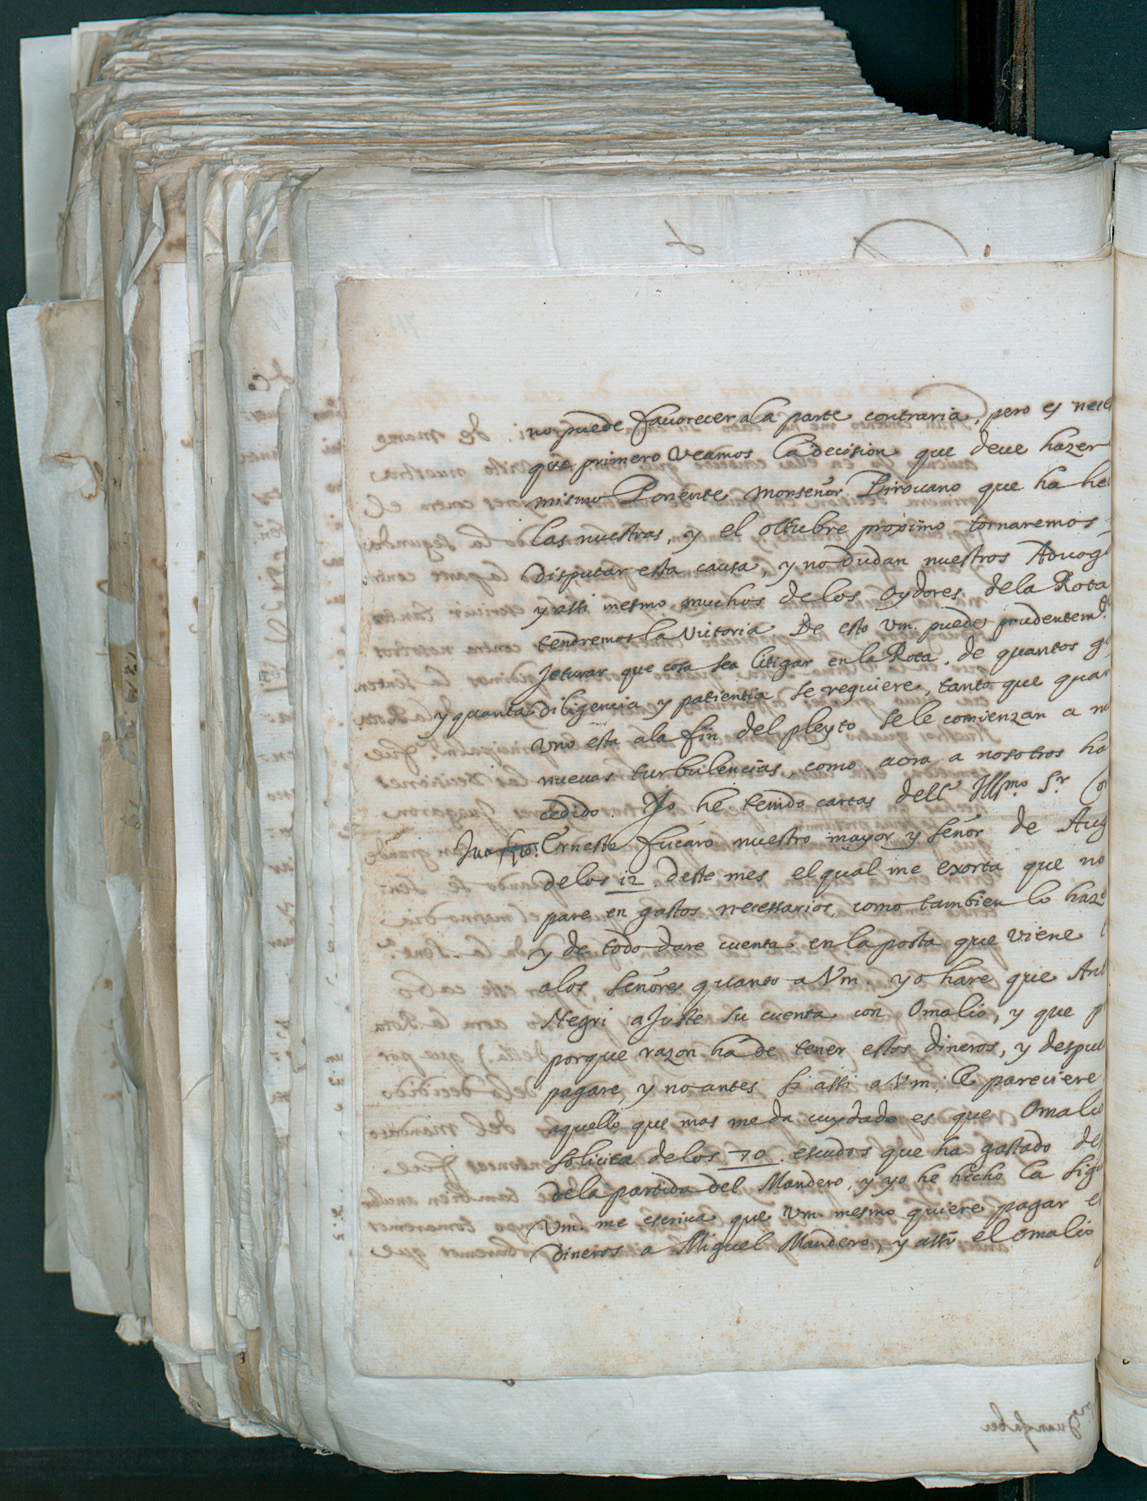 no puede favorecer a la parte contraria, pero es nece
que primero veamos la decision que deue hazer
mismo Ponente Monseñor Pirouano que ha he
las nuestras, y el ottubre proximo tornaremos
disputar esta causa, y no dudan nuestros Aduog
y assi mesmo muchos de los oydores de la Rota
tendremos la Victoria De esto Vm. puede prudentem.
jeturar que cosa sea litigar en la Rota. de quantos g
y quanta diligencia y patientia se requiere, tanto que quan
vno esta a la fin del pleyto se le comienzan a m
nuevas turbulencias, como aora a nosotros ha
cedido. Yo he tenido cartas dell Illmo. Sr. Co
Ernesto Fucaro nuestro mayor y señor de Aug
de los 12 deste mes el qual me exorta que no
pare en gastos necessarios, como tambien lo haz
y de todo dare cuenta en la posta que viene
a los Señores quanto a Vm. yo hare que Ant
Negri ajuste su cuenta con Omalio, y que p
porque razon ha de tener estos dineros, y despue
pagare, y no antes si assi a Vm. le pareciere
aquello que mas me da cuydado es que Omalio
solicita de los 70. escudos que ha gastado de
de la partida del Mandero, y yo he hecho la sig
Vm. me escriua que Vm. mesmo quiere pagar e
dineros a Miguel Mandero, y assi el Omalio